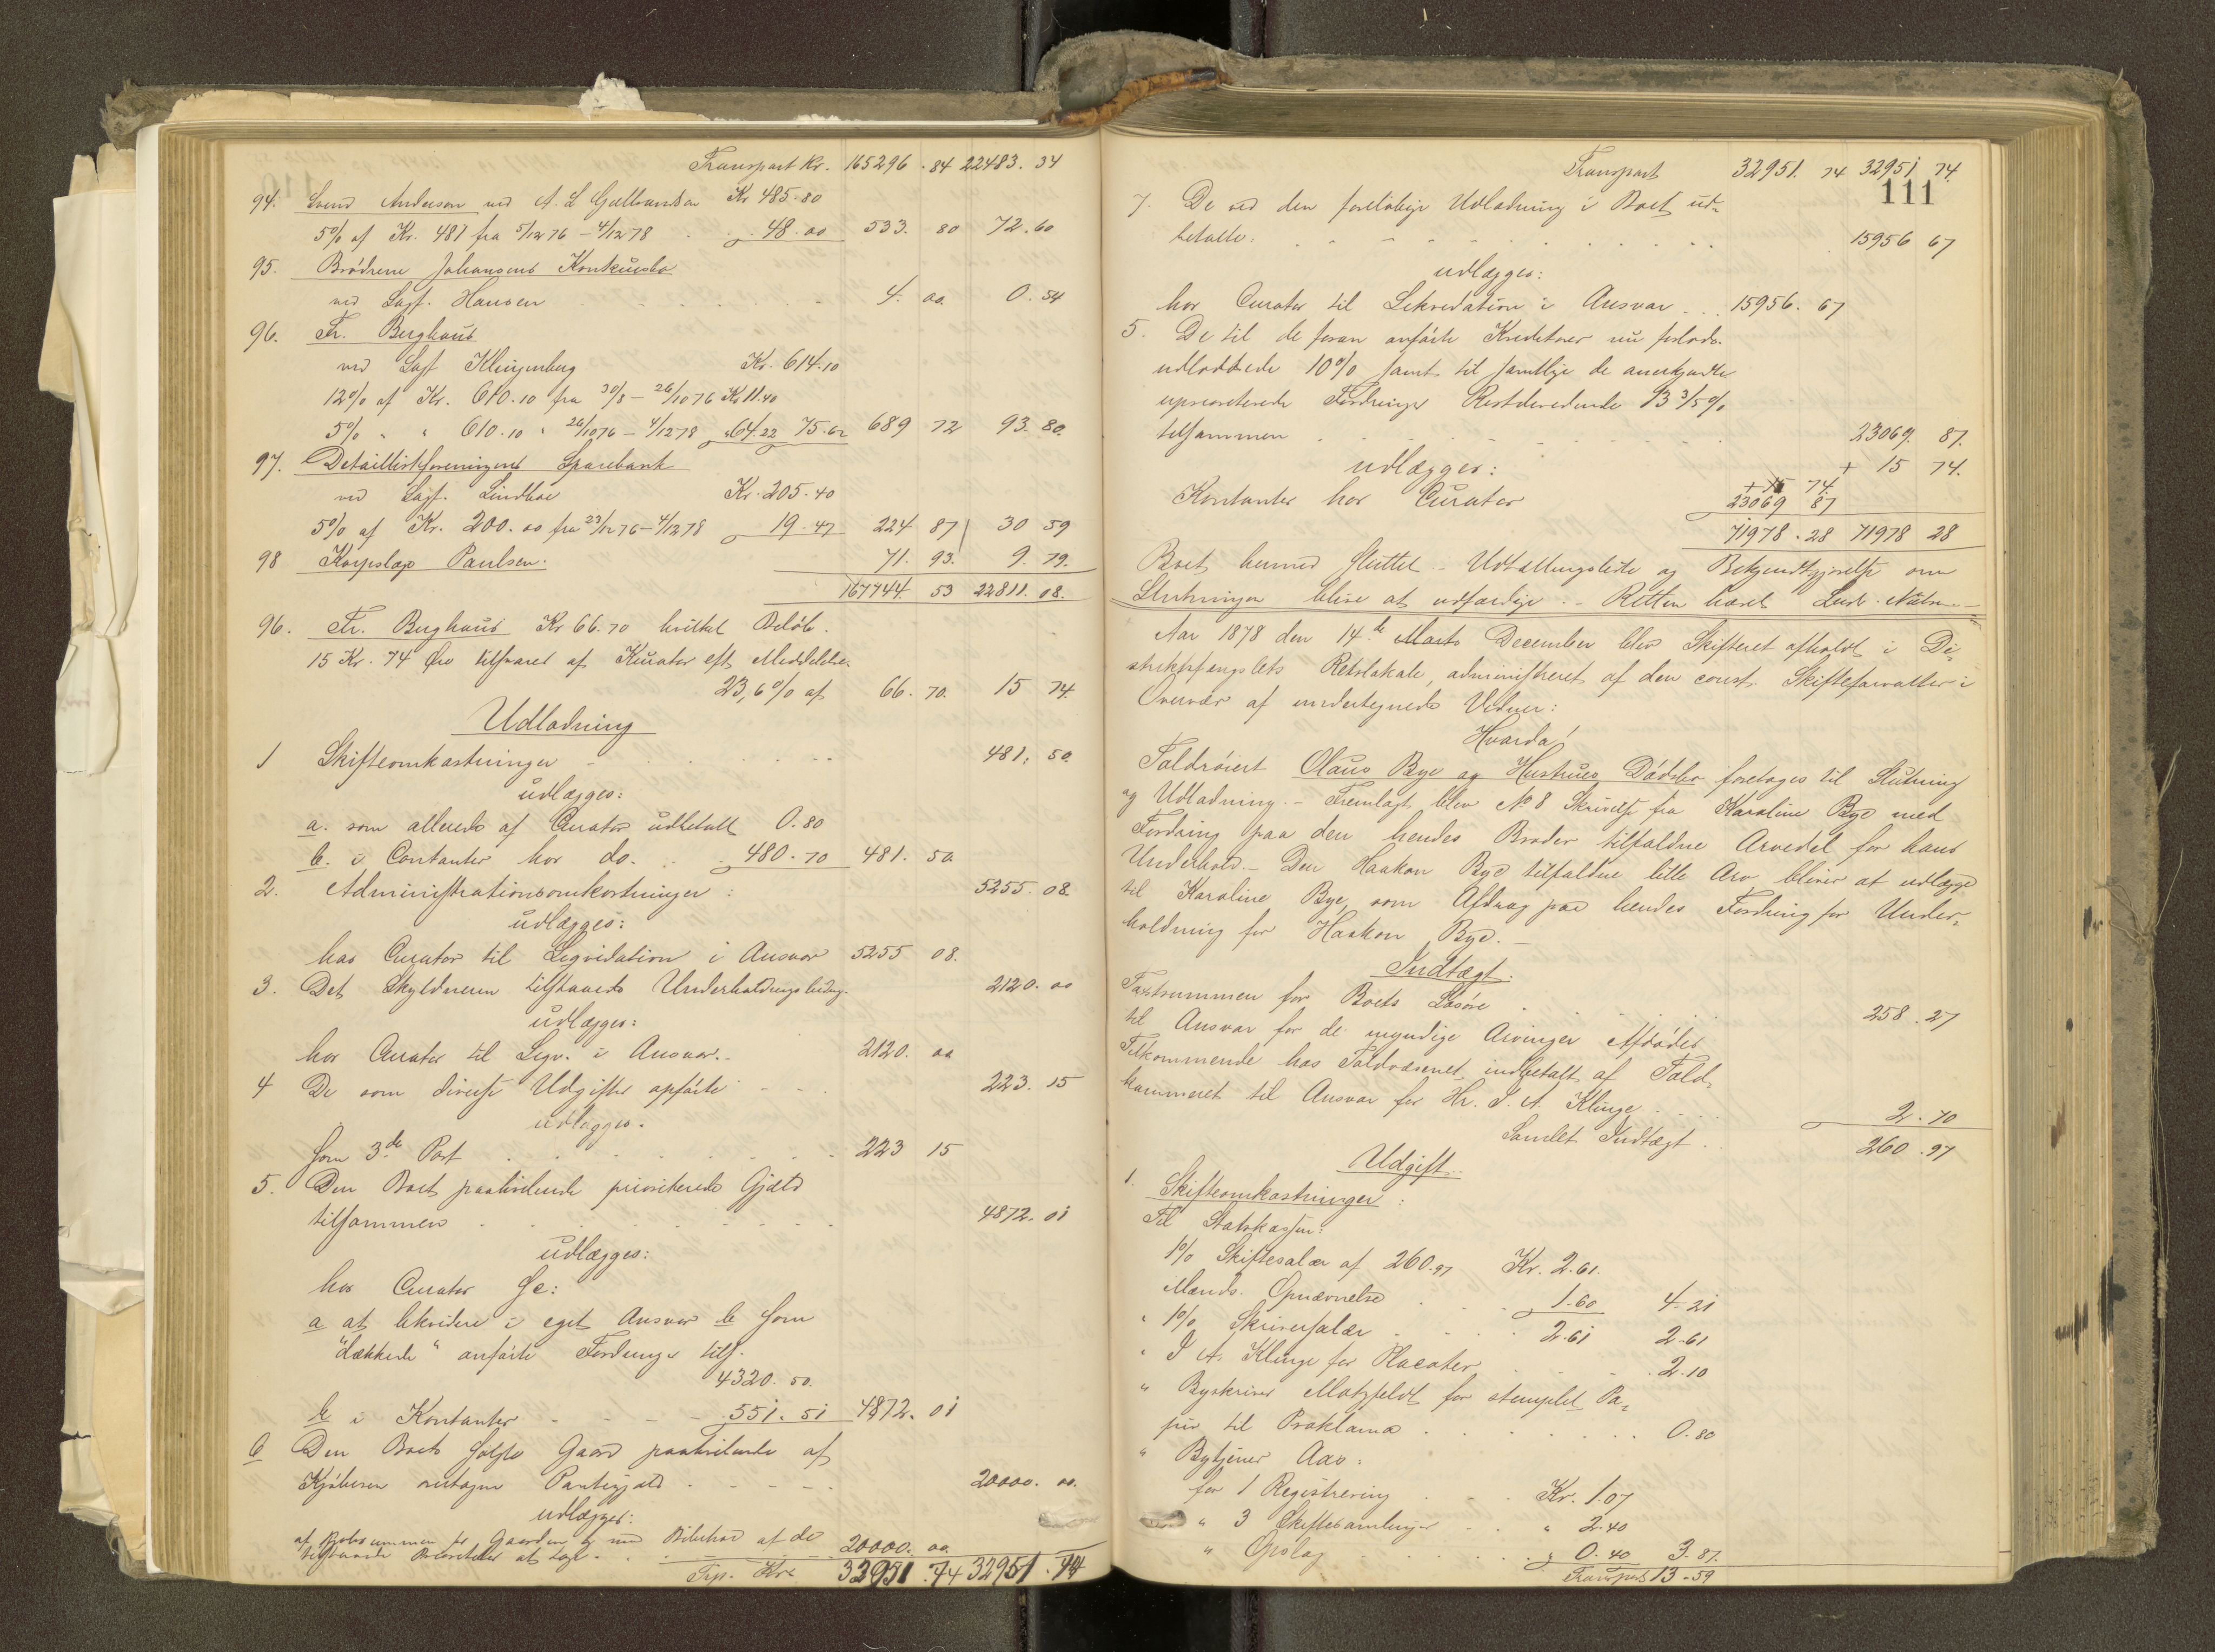 Transport Kr. 165296.84 22483.34
94. Svend Andersen ved A. L. Gulbrandsen Kr 485-80
5% af Kr. 481 fra 5/12 76 - 4/12 78 48.00 533.80 72.60
95. Brødrene Johansens Konkursbo
ved Sagf. Hansen 4.00 0.54
96. Fr. Berghaus
ved Sagf Klingenberg Kr. 614.10
12% af Kr. 610.10 fra 30/8 - 26/10 76 Kr 11.40
5% " " 610.10 " 26/10 76 - 4/12 78 " 64.22 75.62 689 72 93.80.
97. Detaillistforeningens Sparebank
ved Sagf. Lindboe Kr. 205.40
5% af Kr. 200.00 fra 23/12 76 - 4/12 78 19-47 224 87 30 59
98 Korpslæge Paulsen. 71.93. 9.79.
167744.53 22811.08.
96. Fr. Berghaus Kr 66.70 hvilket Beløb
15 Kr. 74 Øre tilsvares af Kurator eft Meddelelse.
23,6% af 66.70. 15 74.
Udlodning
1 Skifteomkostninger 481.50.
udlægges:
a. som allerede af Curator udbetalt 0.80
b. i Contanter hos do. 480.70 481.50
2. Administrationsomkostninger: 5255.08
udlægges:
hos Curator til Liqvidation i Ansvar 5255 08.
3. Det Skyldneren tilstaaede Underholdningsbidrag. 2120.00
udlægges:
hos Curator til Liqv. i Ansvar.- 2120.00
4 De som diverse Udgifter opførte 223.15
udlægges.
som 3die Post 223 15
5. Den Boet paahvilende prioriterede Gjæld
tilsammen 4872.01
udlægges:
hos Curator
a at likvidere i eget Ansvar de som
"dækkede" anførte Fordringer tils.
4320.50.
b i Kontanter 551.51 4872.01
6 Den Boets solgte Gaard paahvilende af
Kjøberen overtagne Pantegjæld 20000.00.
udlægges:
af Kjøbesummen for Gaarden og med Bibehold af de
Prioriteter 20000.00.
Trp. Kr. 32951.74 32951.74
111
Transport 32951.74 32951 74.
7. De ved den foreløbige Udlodning i Boet ud-
betalte 15956 67
udlægges:
hos Curator til Likvidation i Ansvar 15956.67
5. De til de foran anførte Kreditorer nu
udloddede 10% samt til samtlige de anerkjendte
uprioriterede Fordringer 13 3/5 %
tilsammen 23069.87.
udlægges: + 15 74.
+ 15 74.
Kontanter hos Curator 23069 87
71978.28 71978 28
Boet hermed sluttet - Udtællingsliste og Bekjendtgjørelse om
Slutningen blive at udfærdige. - Retten hævet
Aar 1878 den 14de Marts December blev Skifteret afholdt i Di-
striktsfængslets Retslokale, administreret af den const. Skifteforvalter i
Overvær af undertegnede Vidner:
Hvorda!
Toldrøiert Olaus Bye og Hustrues Dødsbo foretoges til Slutning
og Udlodning. - Fremlagt blev No 8 Skrivelse fra Karoline Bye med
Fordring paa den hendes Broder tilfaldne Arvedel for hans
Underhold. - Den Haakon Bye tilfaldne lille Arv bliver at udlægge
til Karoline Bye, som Afdrag paa hendes Fordring for Under-
holdning for Haakon Bye. -
Indtægt.
Taxtsummen for Boets Løsøre 258.27
til Ansvar for de myndige Arvinger Afdødes
Tilkommende hos Toldvæsenet, indbetalt af Told-
kammeret til Ansvar for Hr. I. A. Klinge 2.70
Samlet Indtægt 260.97
Udgift.
1. Skifteomkostninger:
Til Statskassen:
1% Skiftesalær af 260.97 Kr. 2.61.
Mænds. Opnævnelse 1-60 4-21
" 1% Skriversalær 2.61 2-61
" I. A. Klinge for Placater 2.10
" Byskriver Motzfeldt for stemplet Pa-
pir til Proklama 0.80
" Bytjener Aas:
for 1 Registrering Kr. 1.07
" 3 Skiftesamlinger " 2.40
" Opslag 0.40 3.87.
Transport 13-59